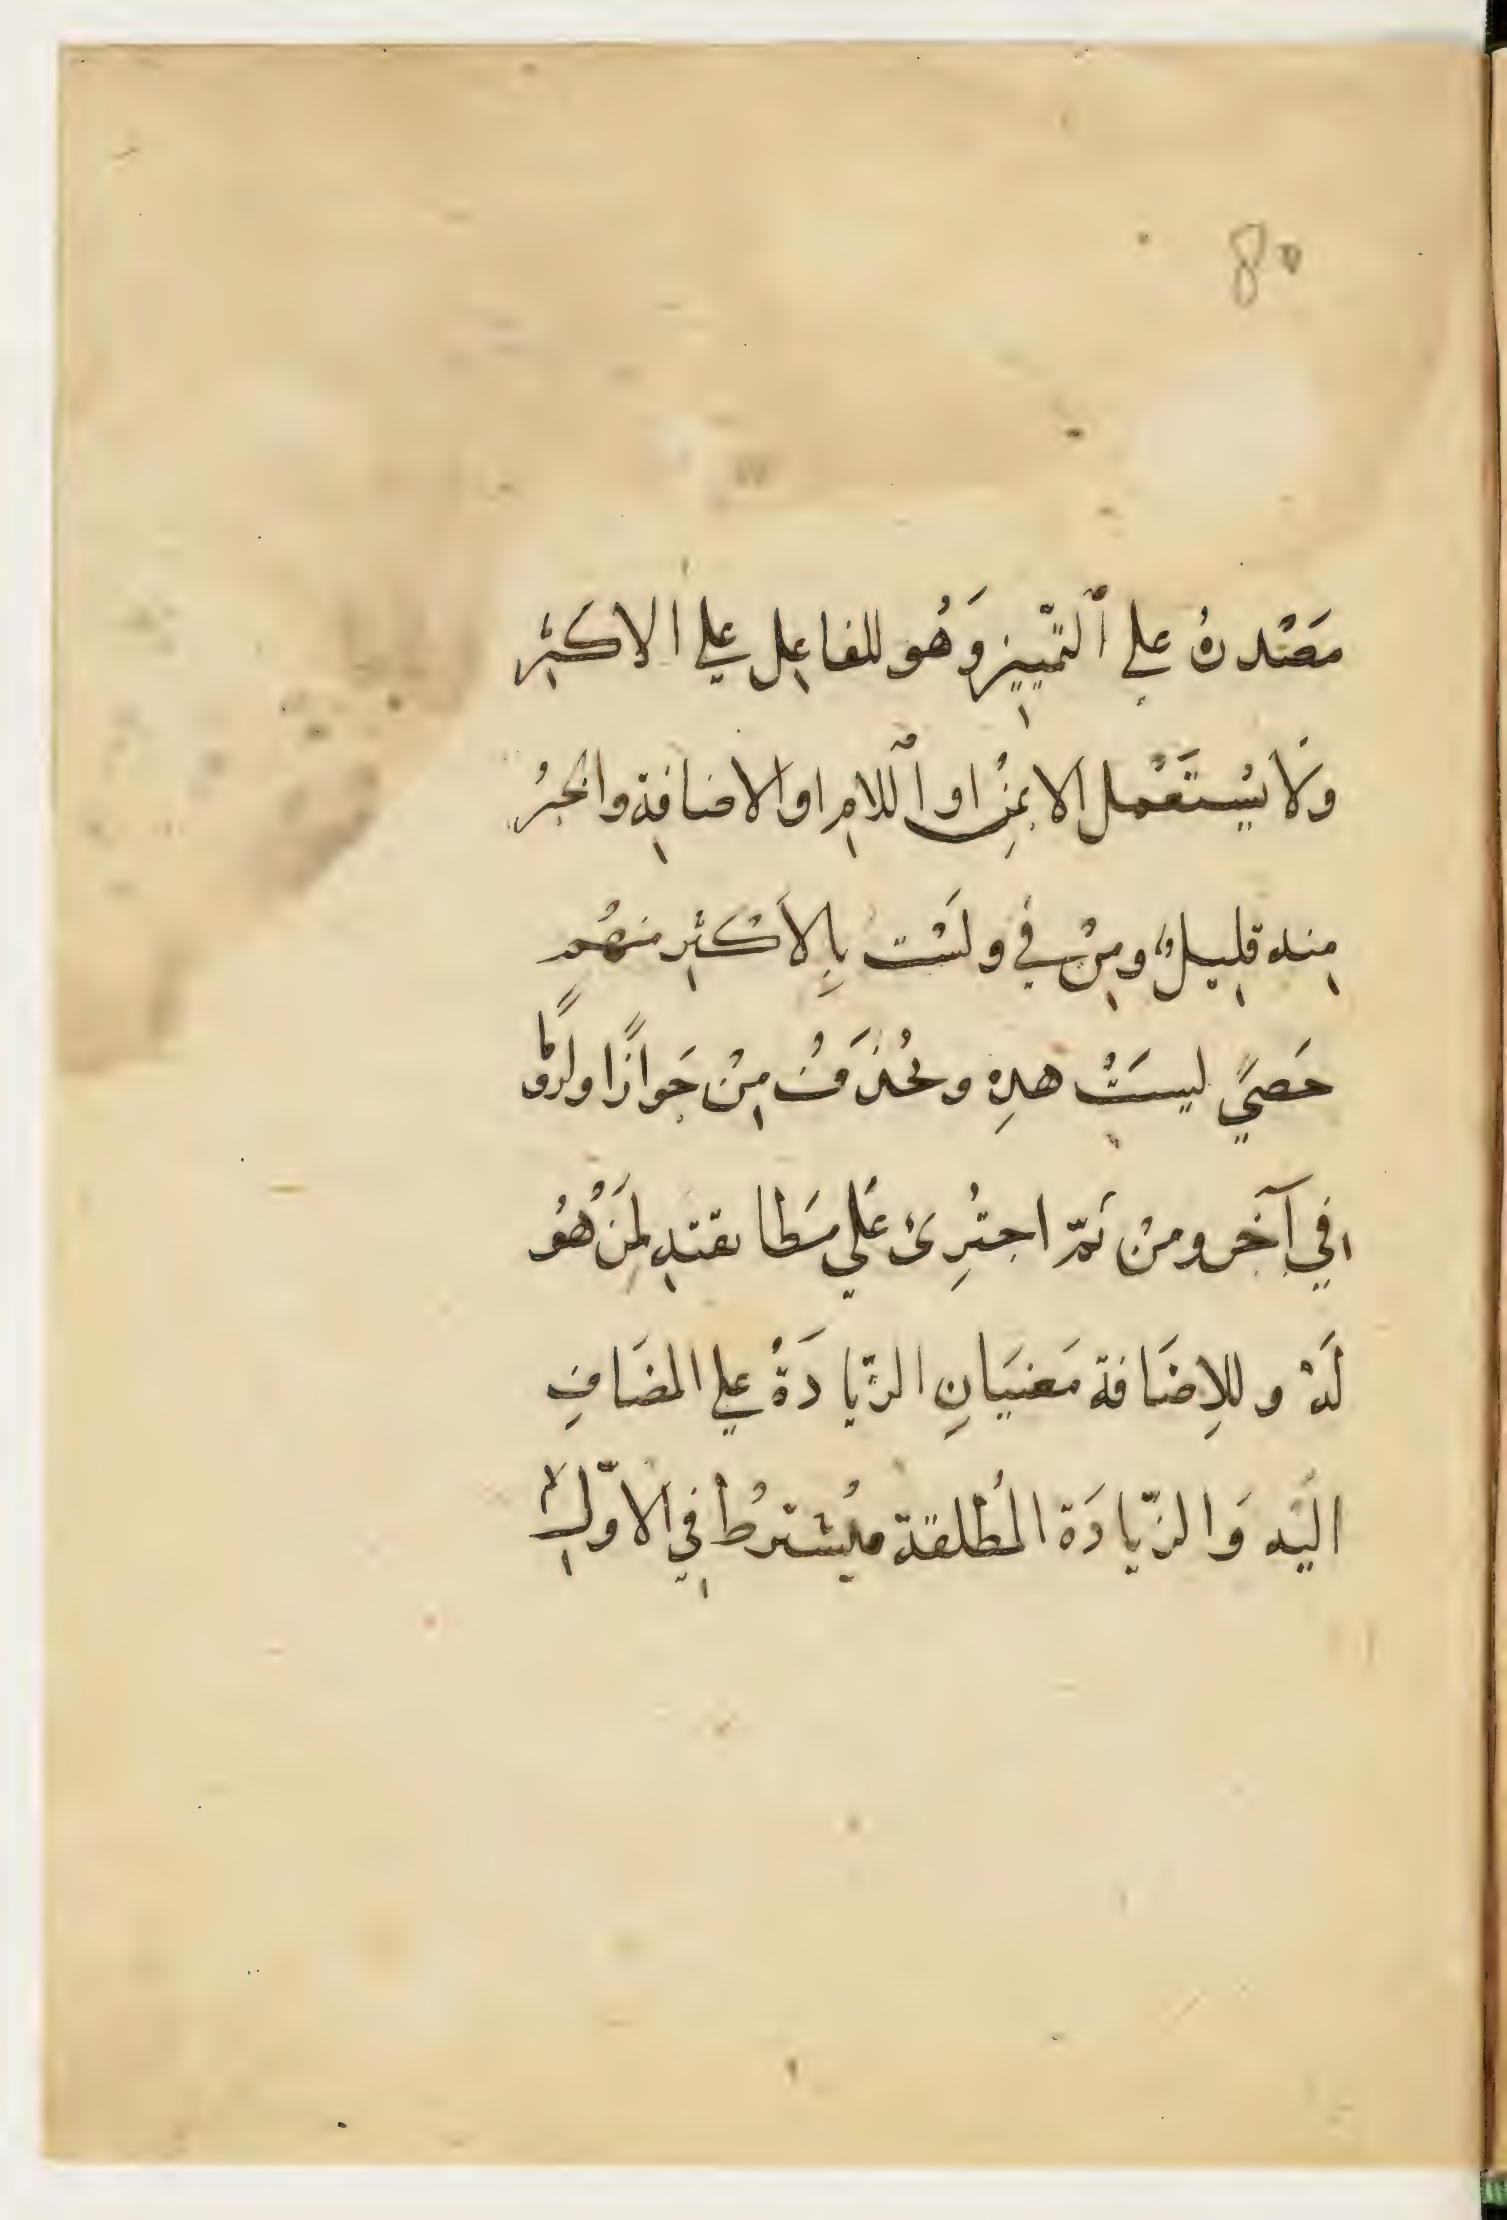 8°
مَصْدرهُ علي ٱلتّمييزِ وَهُو للفاعِل علي الاكثَرِ
وَلَا يُسْتَعْمل الا بمِن اوٱللامِ اوالاضافَةِ والجَرُ
مِنه قلِيلٌ ومِنْ في ولَسْت بِالاَكْثَرِ منهُم
حَصىً ليسَتْ هذِهِ وتُحْذَفُ مِنْ جَوازًا ولزومًا
في آخَر ومنْ ثَمّ اجتُرِئ عَلي مطابقتهِ لمَِن هُوَ
لَهُ وللاِضَافة مَعنيَانِ الزّيادَةُ علي المضَافِ
اليْه وَالزّيادَة المُطلقة فيُشترطُ في الاوّلِ